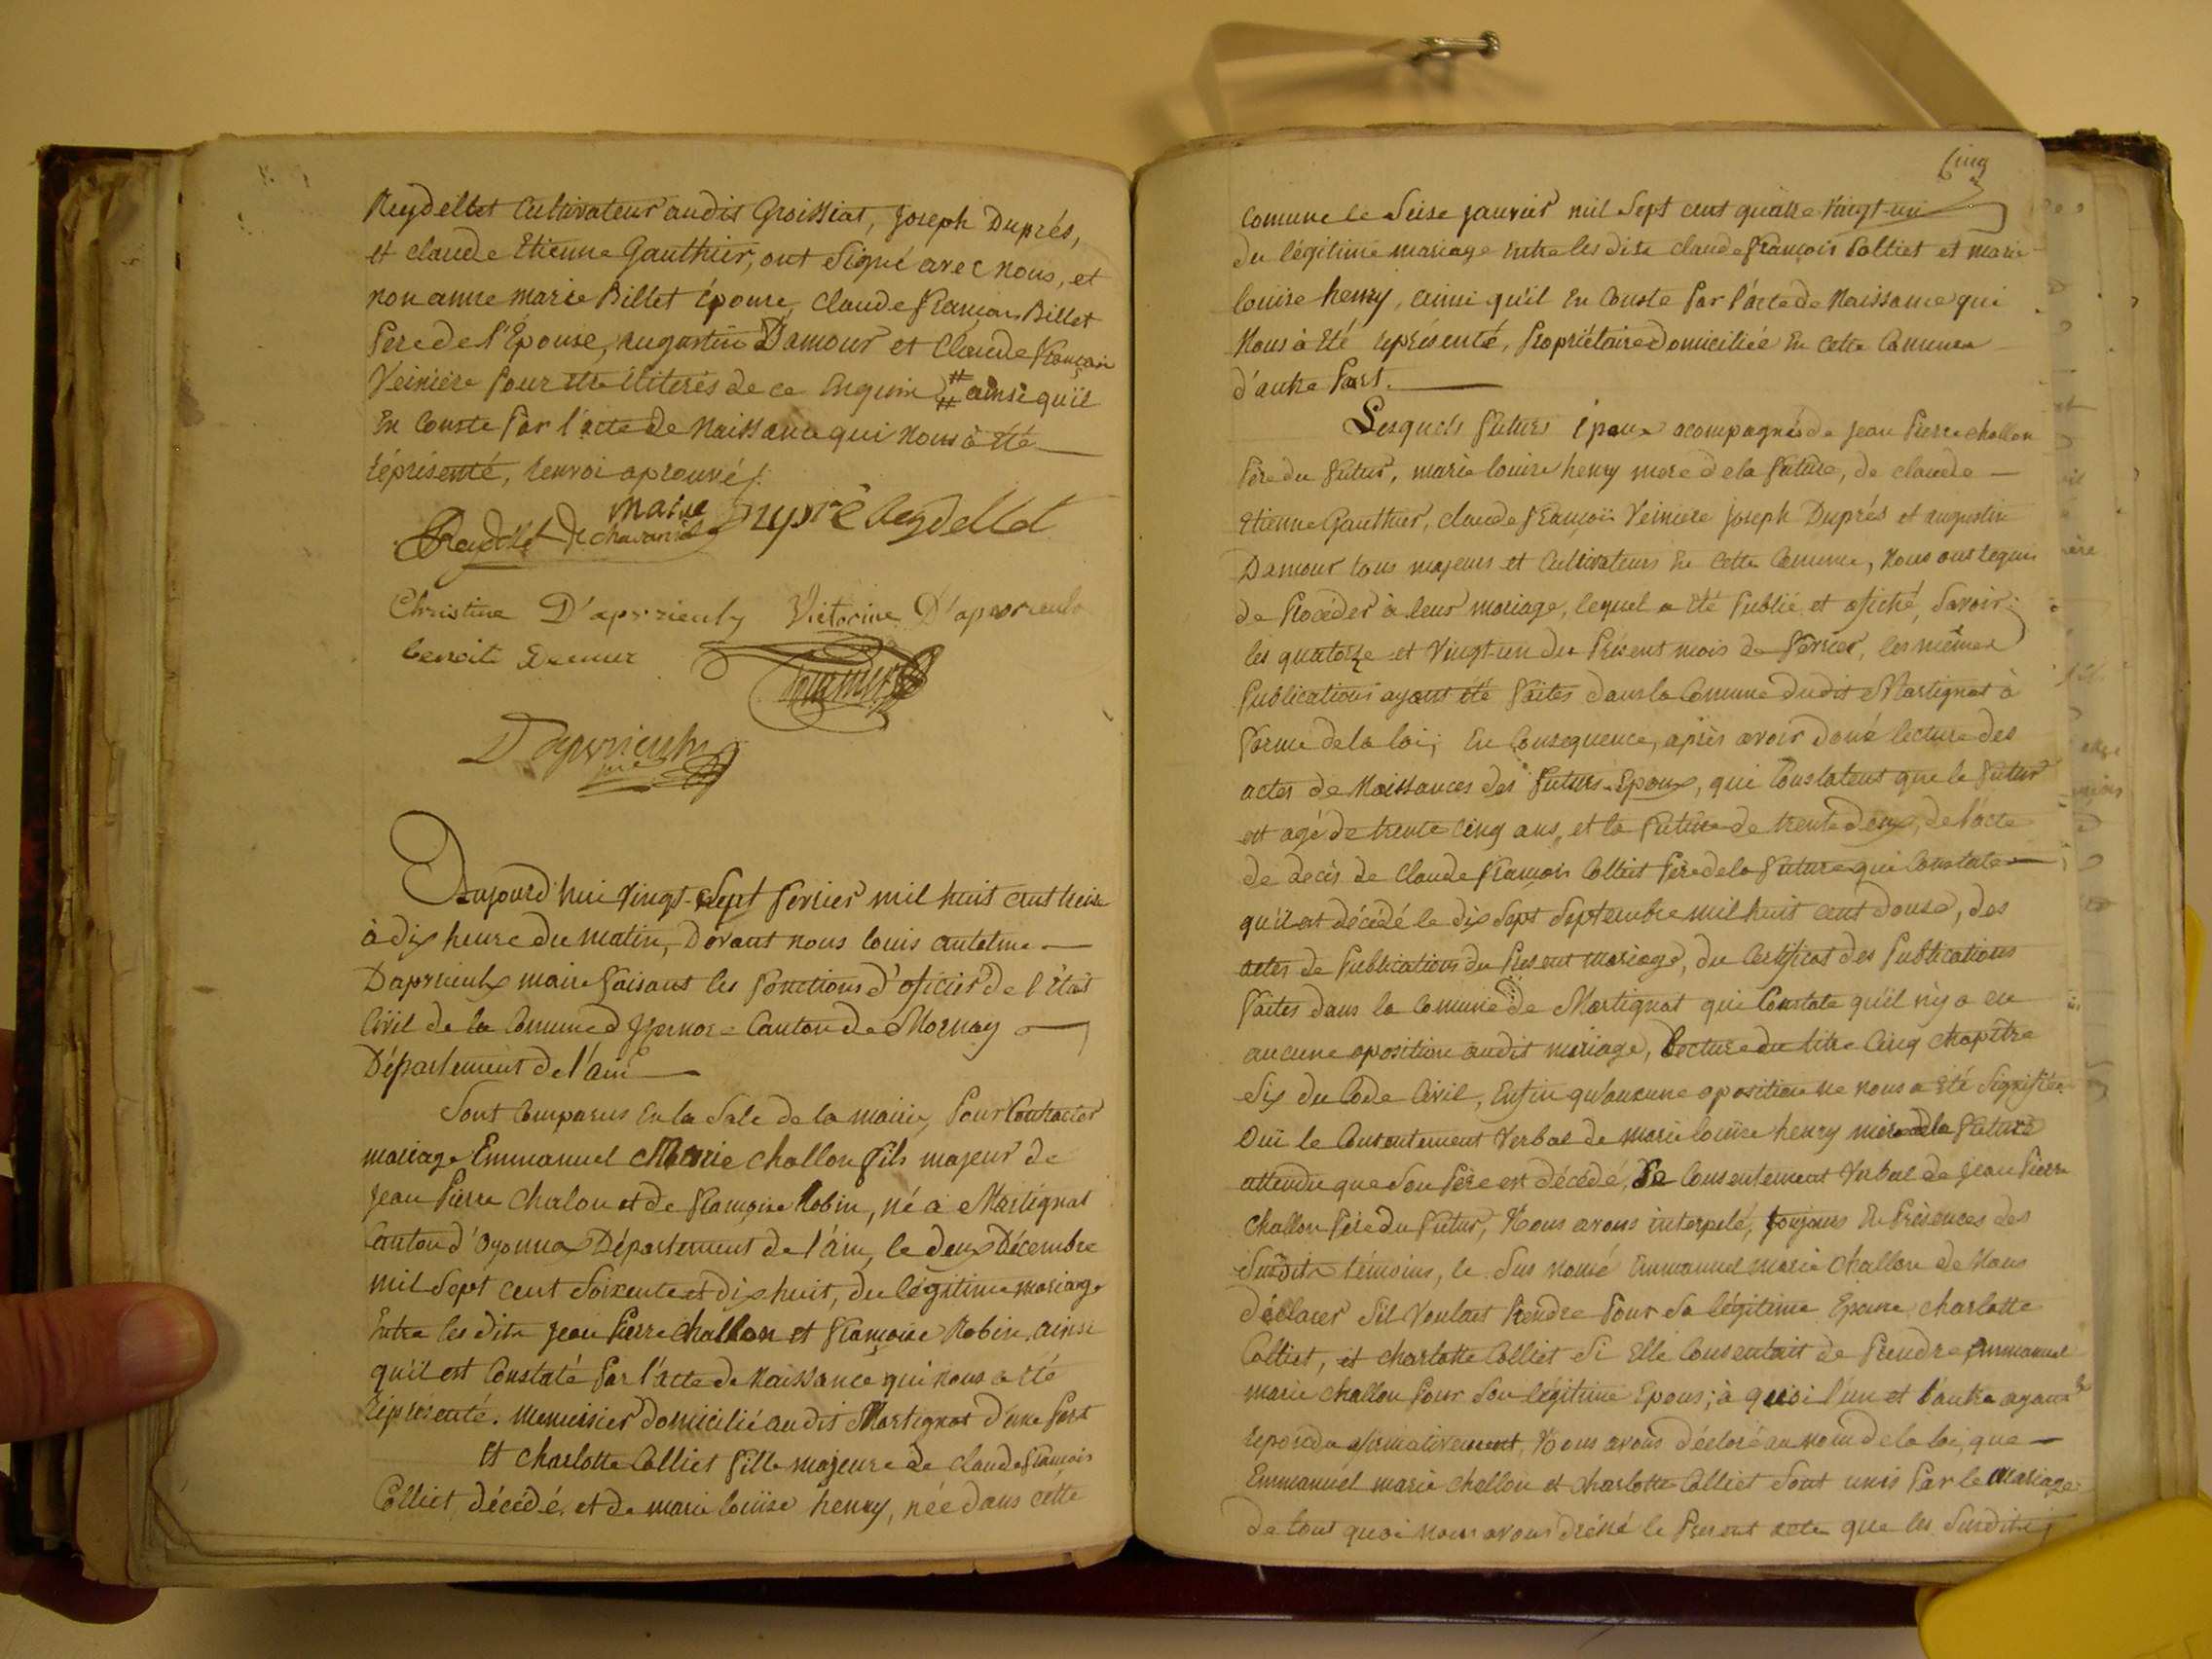 Reydellet Cultivateur audit Groissiat, Joseph Duprés,
et claude Etienne Gauthier, ont Signé avec nous, et
non anne marie Billet épouse, claude François Billet
Pere de l'Épouse, augustin Damour et Claude François
Veiniére pour être illiterés de ce enquis # ainsi qu'il
En Conste Par l'acte de Naissance qui Nous à été
réprésenté, renvoi aprouvé /.
maire Dupré Reydellet
Reydellet De chavania
Christine D'apvrieulx Victorine D'apvrieulx
benoite
Gauthier
D'apvrieulx
Aujourd'hui Vingt-Sept fevrier mil huit cent treise
à dix heure du matin, Devant nous louis antelme
Dapvrieulx maire Faisant les Fonctions d'oficier de l'État
Civil de la Comune d'Izernore Canton de Mornay
Département de l'ain
Sont Comparus En la Sale de la mairie, Pour Contracter
mariage Emmanuel Marie challon Fils majeur de
Jean Pierre Chalon et de Françoise Robin, né à Martignat
Canton d'oyonnax Département de l'ain, le deux Décembre
mil Sept cent Soixente et dix huit, du légitime mariage
Entre les dits Jean Pierre challon et Françoise Robin, ainsi
qu'il est Constaté Par l'acte de Naissance qui nous a été
réprésenté. menuisier domicilié audit Martignat d'une Part
Et charlotte Colliet Fille majeure de claude François
Colliet, décédé, et de marie louise henry, née dans cette
Cinq
comune le Seise janvier mil Sept cent quatre Vingt-un
du légitime mariage Entre les dits claude François Colliet et marie
louise henry, ainsi qu'il En Conste Par l'acte de Naissance qui
Nous à été représenté, Propriétaire domiciliée En cette Comune
d'autre Part.
Lesquels Futurs épous acompagnés de Jean Pierre challon
Pere du Futur, marie louise henry mere de la Future, de claude
Etienne Gauthier, claude François Veiniere Joseph Duprés et augustin
Damour tous majeurs et Cultivateurs En cette Comune, Nous ont requis
de Procéder à leur mariage, lequel a été Publié et afiché, Savoir:
les quatorze et Vingt-un du Présent mois de Fevrier, les mêmes
Publications ayant été Faites dans la Comune dudit Martignat à
Forme de la loi; En Consequence, après avoir doné lecture des
actes de Naissances des Futurs Epoux, qui Constatent que le Futur
est agé de trente cinq ans, et la Future de trente deux, de l'acte
de decès de Claude François Colliet Pere de la Future qui Constate
qu'il est décédé le dix Sept Septembre mil huit cent douse, des
actes de Publications du Present mariage, du Certificat des Publications
Faites dans la Comune de Martignat qui Constate qu'il n'y a eu
aucune oposition audit mariage, lecture du titre Cinq chapitre
Six du Code Civil, Enfin qu'aucune oposition ne nous a été Signifiée.
Oui le Consentement Verbal de marie louise henry mere de la Future
attendu que Son Pere est décédé, le Consentement Verbal de Jean Pierre
challon Pere du Futur, Nous avons interpelé, toujours En Présences des
Susdits témoins, le Sus nomé Emmanuel marie challon de Nous
déclarer S'il Voulait Prendre Pour Sa légitime Epouse charlotte
Colliet, et charlotte Colliet Si Elle Consentait de Prendre Emmanuel
marie challon Pour Son légitime Epous; à quoi l'un et l'autre ayant
repondu afirmativement, Nous avons déclaré au nom de la loi, que
Emmanuel marie challon et charlotte Colliet Sont unis Par le mariage.
de tout quoi nous avons dréssé le Present acte que les Susdits